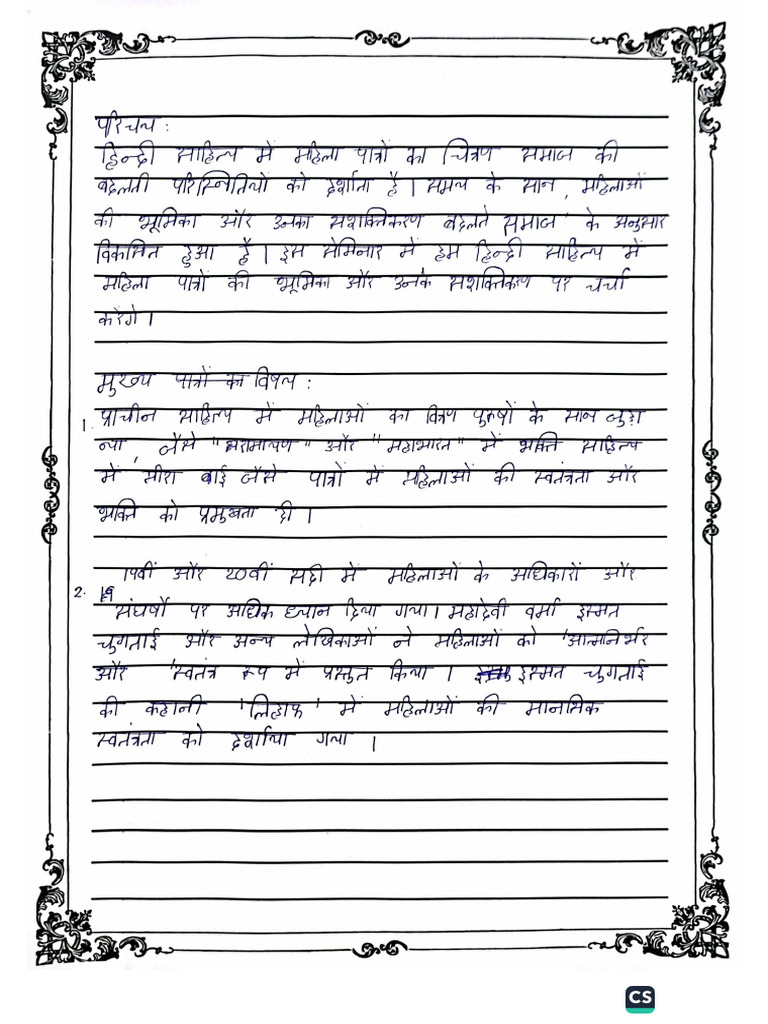 परिचय :
हिन्दी साहित्य में महिला पात्रों का चित्रण समाज की
बदलती परिस्नितियों को दर्शाता है। समय के सान, महिलाओं
की भूमिका और उनका सशक्तिकरण बदलते समाज के अनुसार
विकसित हुआ है। इस सेमिनार में हम हिन्दी साहित्य में
महिला पात्रों की भूमिका और उनके सशक्तिकरण पर चर्चा
करेंगे।
मुख्य पात्रों का विषय :
1. प्राचीन साहित्य में महिलाओं का चित्रण पुरुषों के सान जुड़ा
न्या, जैसे "रामायण" और "महाभारत" में भक्ति साहित्य
में मीरा बाई जैसे पात्रों में महिलाओं की स्वतंत्रता और
भक्ति को प्रमुखता दी।
2. 19वीं और 20वीं सदी में महिलाओं के अधिकारों और
संघर्षों पर अधिक ध्यान दिया गया। महादेवी वर्मा इस्मत
चुगताई और अन्य लेखिकाओं ने महिलाओं को 'आत्मनिर्भर
और 'स्वतंत्र रूप में प्रस्तुत किया। इस्मत चुगताई
की कहानी 'लिहाफ' में महिलाओं की मानसिक
स्वतंत्रता को दर्शाया गया।
CS